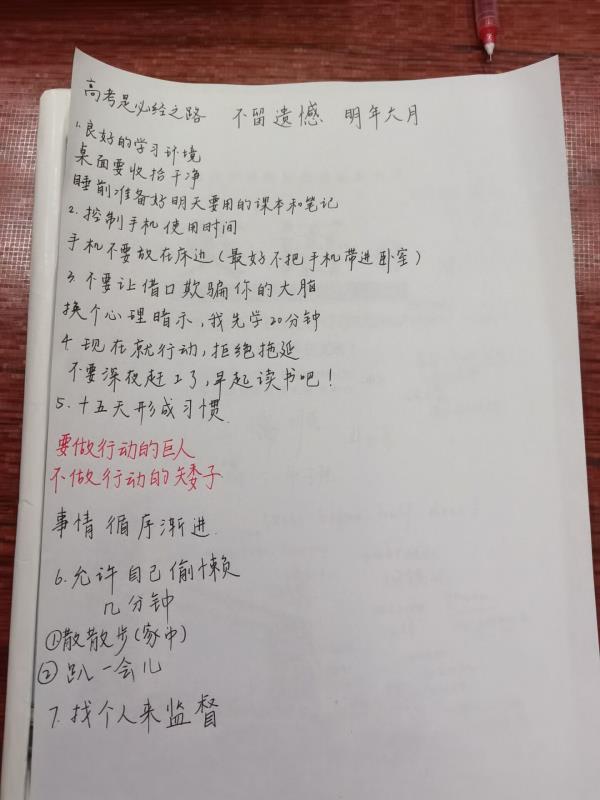 高考是必经之路 不留遗憾 明年六月
1.良好的学习环境
桌面要收拾干净
睡前准备好明天要用的课本和笔记
2.控制手机使用时间
手机不要放在床边(最好不把手机带进卧室)
3.不要让借口欺骗你的大脑
换个心理暗示,我先学20分钟
4.现在就行动,拒绝拖延
不要深夜赶工了,早起读书吧!
5.十五天形成习惯.
要做行动的巨人
不做行动的矮子
事情循序渐进.
6.允许自己偷懒
几分钟
①散散步(家中)
②趴一会儿
7.找个人来监督